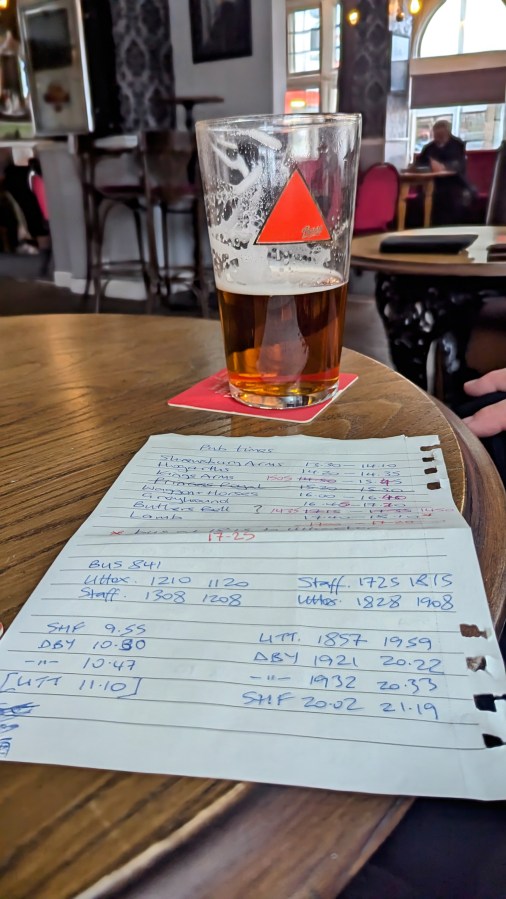 Bass
Pub times
Shrewsbury Arms 13.30 - 14.10
Hogarths 14.20 14.35
Kings Arms 1505 15.45
Princess Royal 15.20
Wagon + Horses
Greyhound 16.00 16.40
Butchers Bell ?
Lamb
17.25
BUS 841
Uttox. 1210 1120 Staff. 1725 1815
Staff. 1308 1208 Uttox. 1828 1908
SHF 9.55 UTT. 1857 1959
DBY 10.30 DBY 1921 20.22
-"- 10.47 -"- 1932 20.33
[UTT 11.10] SHF 20.02 21.19